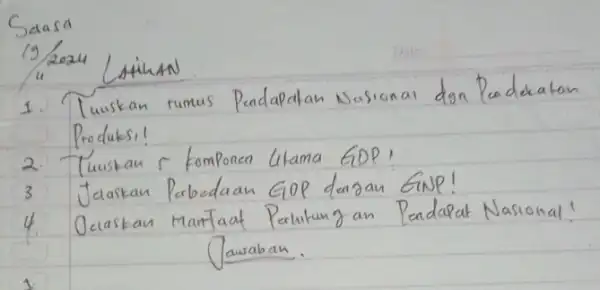 Selasa
19/11 2024
LATIHAN
1. Tuliskan rumus Pendapatan Nasional dgn Pendekatan
Produksi!
2. Tuliskan 5 komponen Utama GDP!
3 Jelaskan Perbedaan GDP dengan GNP!
4. Jelaskan Manfaat Perhitungan Pendapat Nasional!
Jawaban.
1